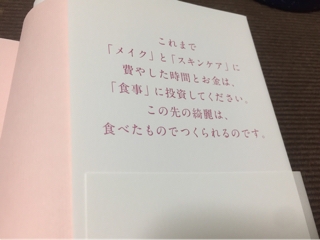 これまで
「メイク」と「スキンケア」に
費やした時間とお金は、
「食事」に投資してください。
この先の綺麗は、
食べたものでつくられるのです。